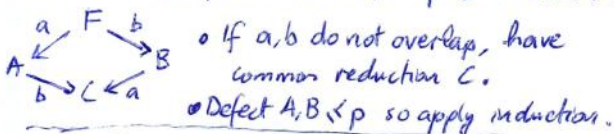 a F b • If a,b do not overlap, have
A B common reduction C.
b C a • Defect A,B < p so apply induction.